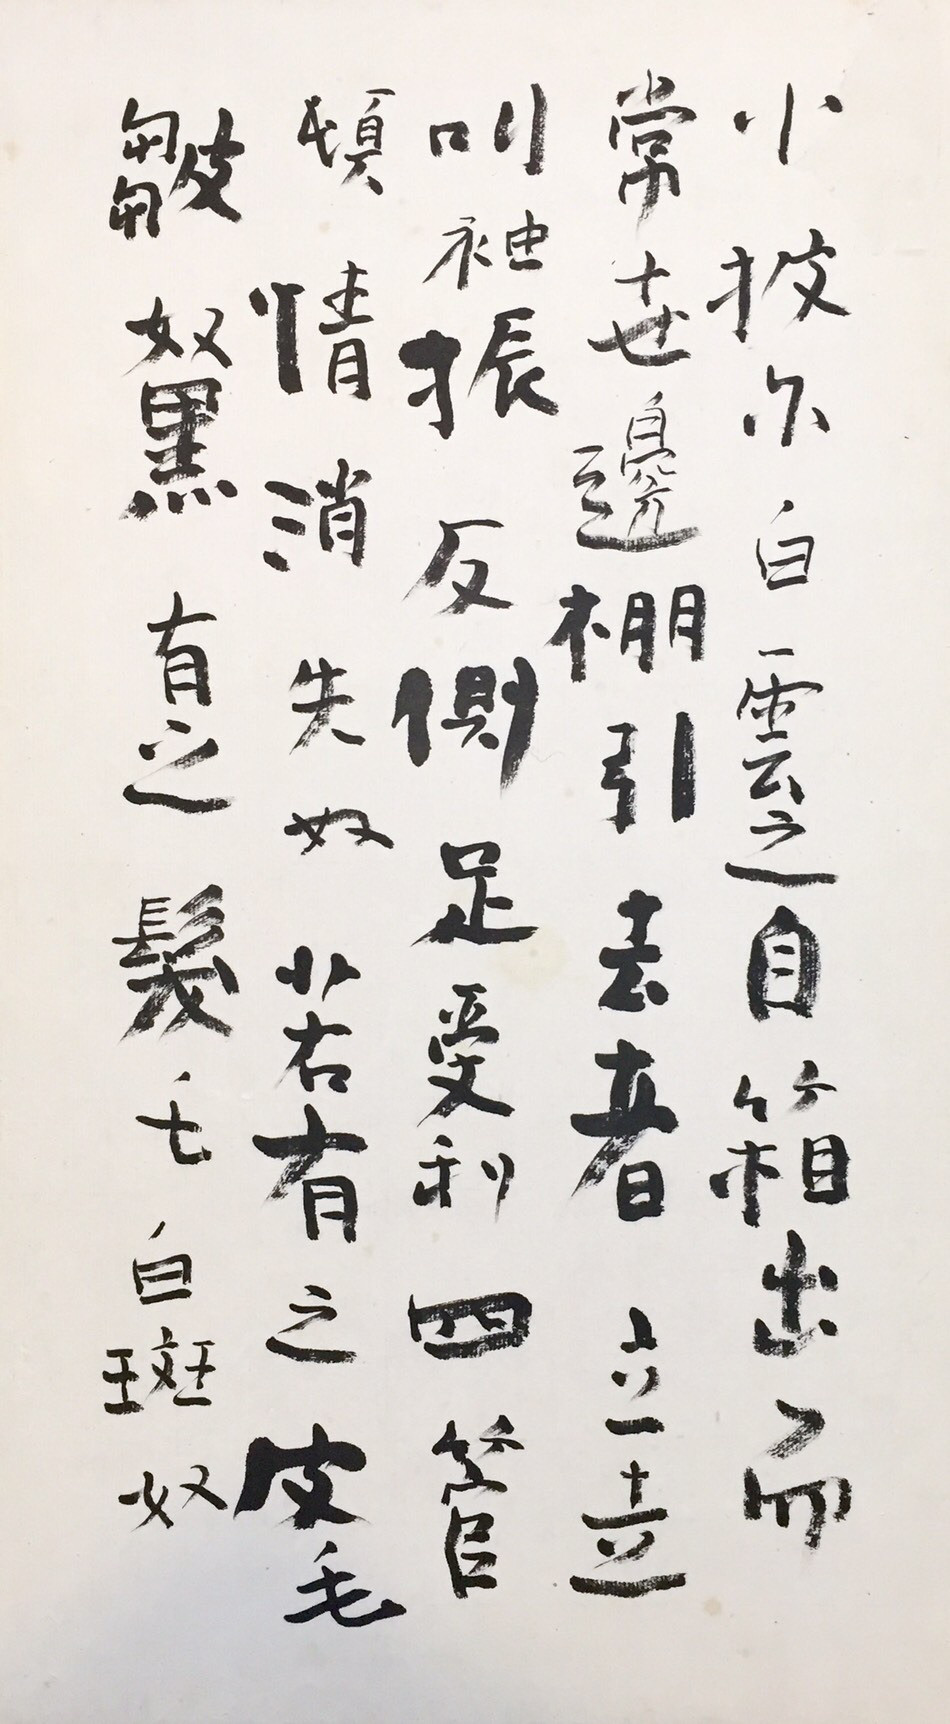 小披尓白雲之自箱出而
常世邊棚引去者立走
叫袖振反側足受利四管
頓情消失奴若有之皮毛
皺奴黒有之髪毛白斑奴